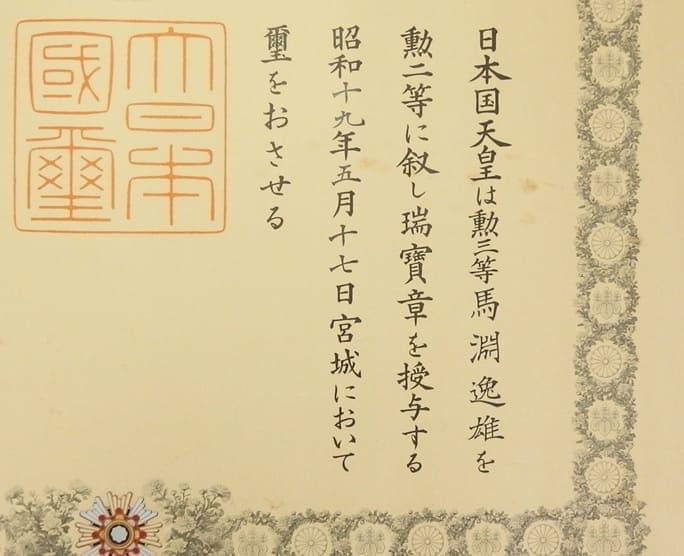 日本国天皇は勲三等馬淵逸雄を
勲二等に叙し瑞寶章を授与する
昭和十九年五月十七日宮城において
璽をおさせる
大日本
國璽